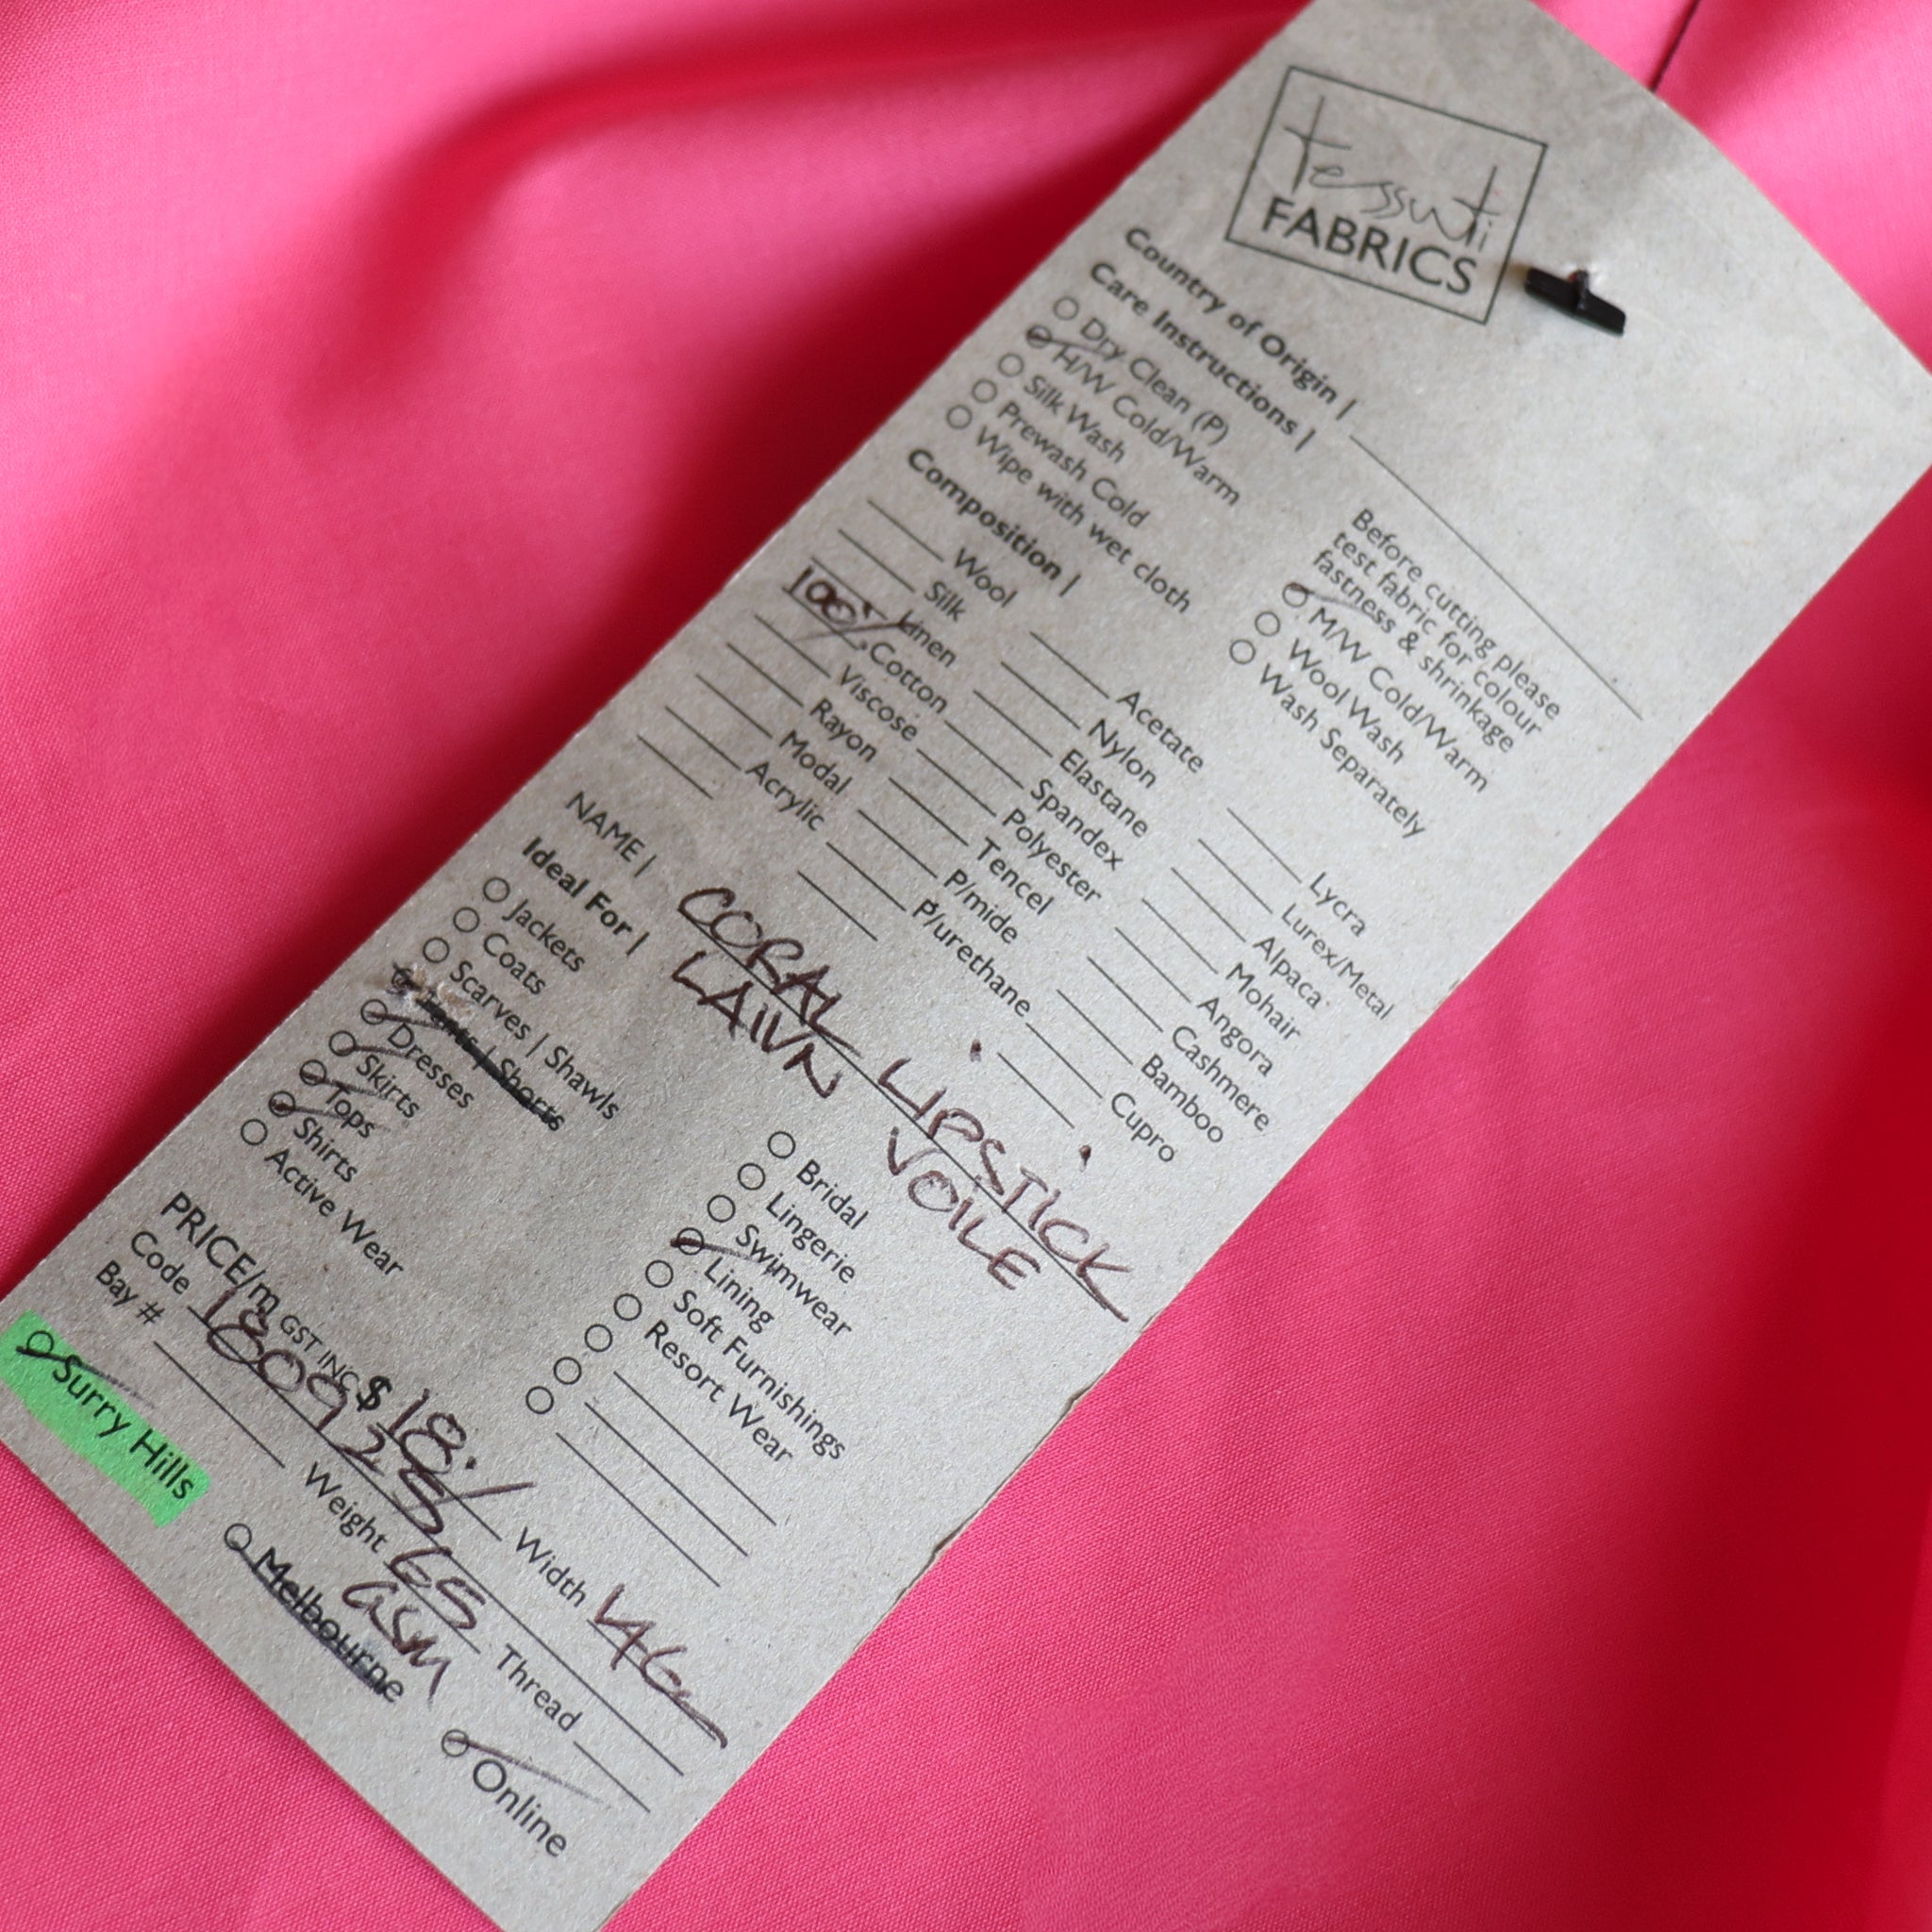 tessuti
FABRICS
Country of Origin |
Care Instructions |
Dry Clean (P)
H/W Cold/Warm
Silk Wash
Prewash Cold
Wipe with wet cloth
Before cutting please
test fabric for colour
fastness & shrinkage
M/W Cold/Warm
Wool Wash
Wash Separately
Composition |
Wool
Silk
Linen
100% Cotton
Viscose
Rayon
Modal
Acrylic
Acetate
Nylon
Elastane
Spandex
Polyester
Tencel
P/mide
P/urethane
Lycra
Lurex/Metal
Alpaca
Mohair
Angora
Cashmere
Bamboo
Cupro
NAME | CORAL LIPSTICK
LAWN VOILE
Ideal For |
Jackets
Coats
Scarves | Shawls
Pants | Shorts
Dresses
Skirts
Tops
Shirts
Active Wear
Bridal
Lingerie
Swimwear
Lining
Soft Furnishings
Resort Wear
PRICE/m GST INC $ 18. Width 146
Code 1809 25
Bay # Weight 65 GSM Thread
Surry Hills Melbourne Online